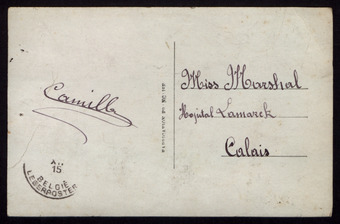 Camille
Miss Marshal
Hopital Lamarck
Calais
15
BELGIË
LEGERPOSTERIJ